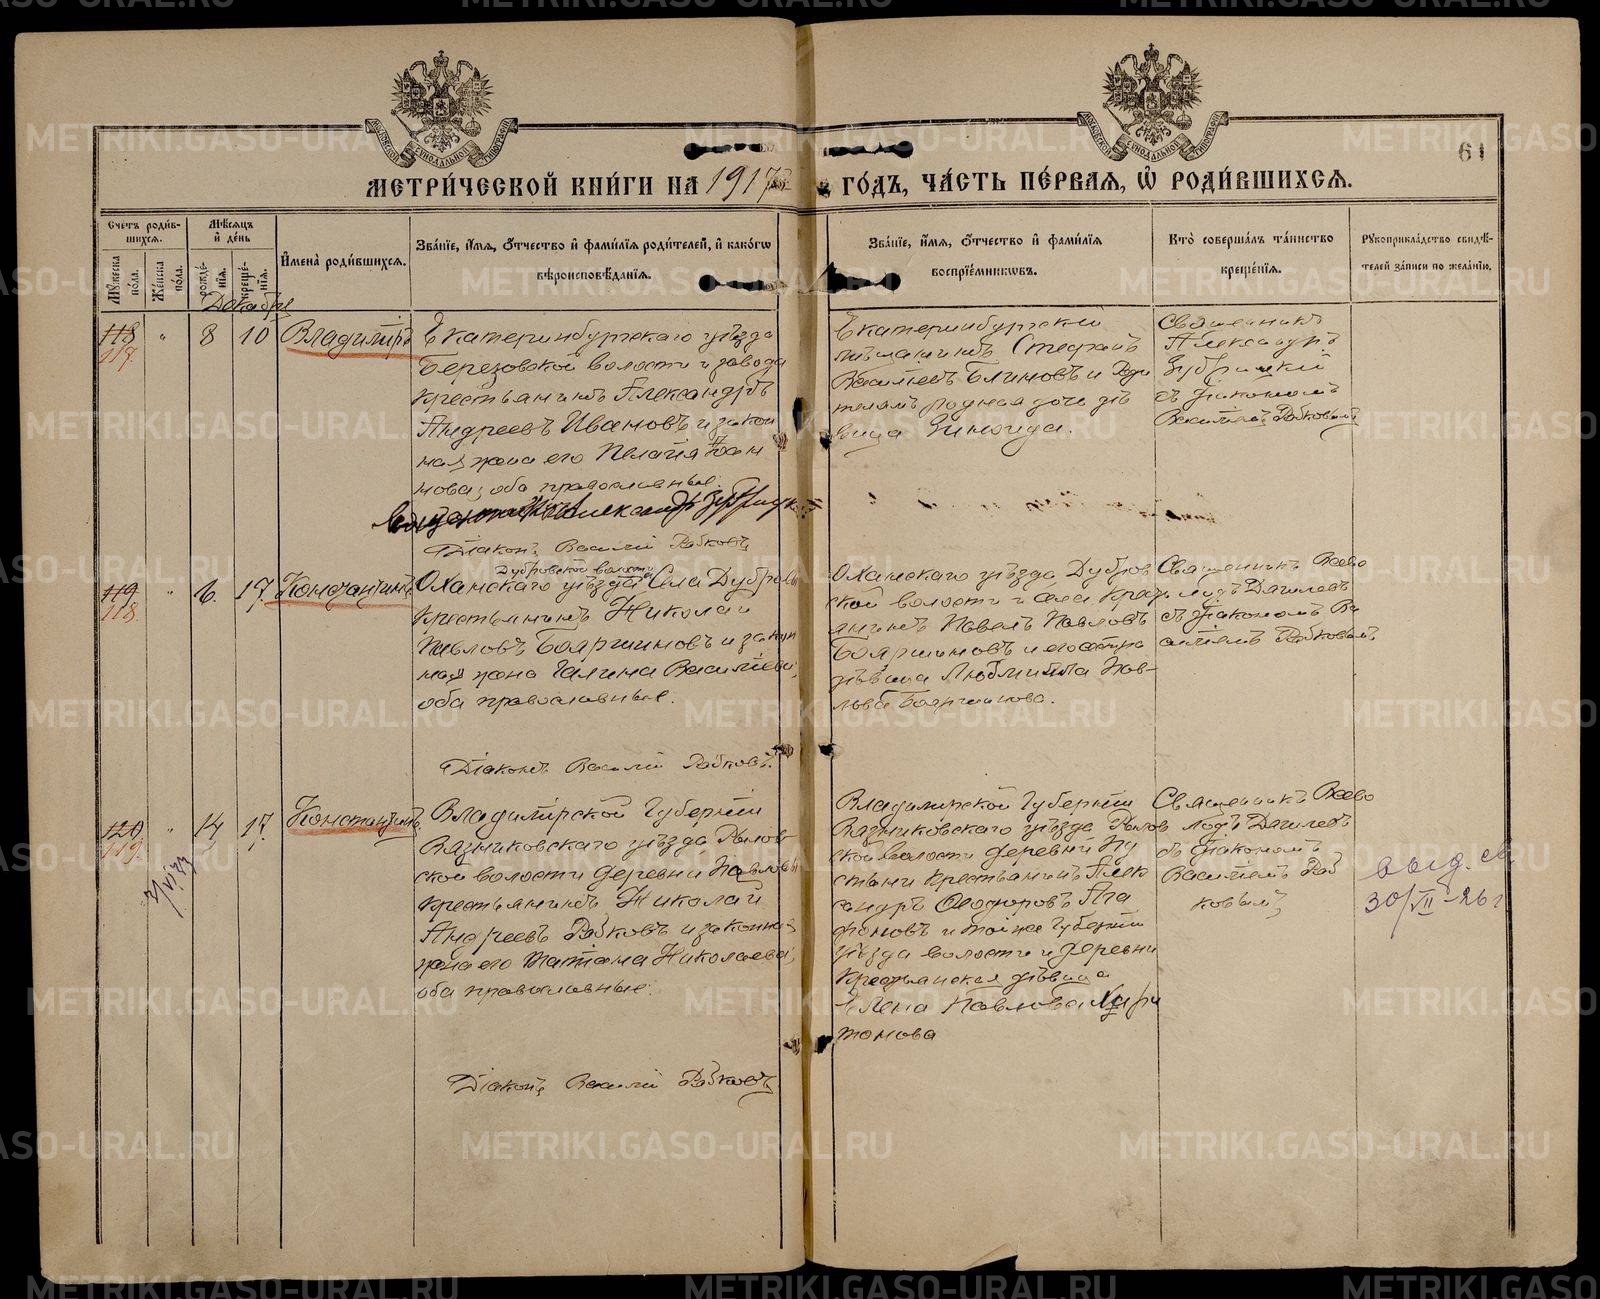 61
МЕТРИ́ЧЕСКОЙ КНИ́ГИ НА 1917 ГО́ДЪ, ЧА́СТЬ ПЕ́РВАЯ, Ѿ РОДИ́ВШИХСЯ.
Счетъ роди́вшихся.
Мѹ́жеска по́ла.
Же́нска по́ла.
Мѣ́сяцъ и҆ де́нь
рожде́нїя.
креще́нїя.
И҆мена̀ роди́вшихся.
Зва́нїе, и҆́мя, ѻ҆́тчество и҆ фами́лїя роди́телей, и҆ како́гѡ вѣроисповѣ́данїя.
Зва́нїе, и҆́мя, ѻ҆́тчество и҆ фами́лїя воспрїе́мникѡвъ.
Кто̀ соверша́лъ та́инство креще́нїя.
Рѹкоприкла́дство свидѣ́телей за́писи по жела́нїю.
Декабрь
118
117.
"
8
10
Владимiръ
Екатеринбургскаго уѣзда
Березовской волости и завода
крестьянинъ Александръ
Андреевъ Ивановъ и закон
ная жена его Пелагiя Iоан
нова; оба православные.
Священникъ Александръ Зубрицкiй
Дiаконъ Василiй Рабковъ
Екатеринбургскiй
мѣщанинъ Стефанъ
Василiевъ Блиновъ и роди
телямъ родная дочь дѣ
вица Зинаида.
Священникъ
Александръ
Зубрицкiй
съ дiакономъ
Василiемъ Рабковымъ
119
118.
"
6.
17.
Константинъ
Дубровской волости
Оханскаго уѣзда Села Дубровы
крестьянинъ Николай
Павловъ Бояршиновъ и закон
ная жена Галина Василiева;
оба православные.
Дiаконъ Василiй Рабковъ.
Оханскаго уѣзда Дубров
ской волости и села кресть
янинъ Павелъ Павловъ
Бояршиновъ и его сестра
дѣвица Людмила Пав-
лова Бояршинова.
Священникъ Всево
лодъ Дягилевъ
съ дiакономъ Ва
силiемъ Рабковымъ
120
119.
"
14
17.
Константинъ
Владимiрской Губернiи
Вязниковскаго уѣзда Рылов
ской волости деревни Павловы
крестьянинъ Николай
Андреевъ Рабковъ и законная
жена его Татiана Николаева;
оба православные.
Дiаконъ Василiй Рабковъ
Владимiрской Губернiи
Вязниковскаго уѣзда Рылов
ской волости деревни Пу
стыни крестьянинъ Алек
сандръ Ѳеодоровъ Ага
фоновъ и той же Губернiи
уѣзда волости и деревни
крестьянская дѣвица
Елена Павлова Хари
тонова
Священникъ Всево
лодъ Дягилевъ
съ дiакономъ
Василiемъ Раб
ковымъ
выд. св.
30/VII-26 г
METRIKI.GASO-URAL.RU